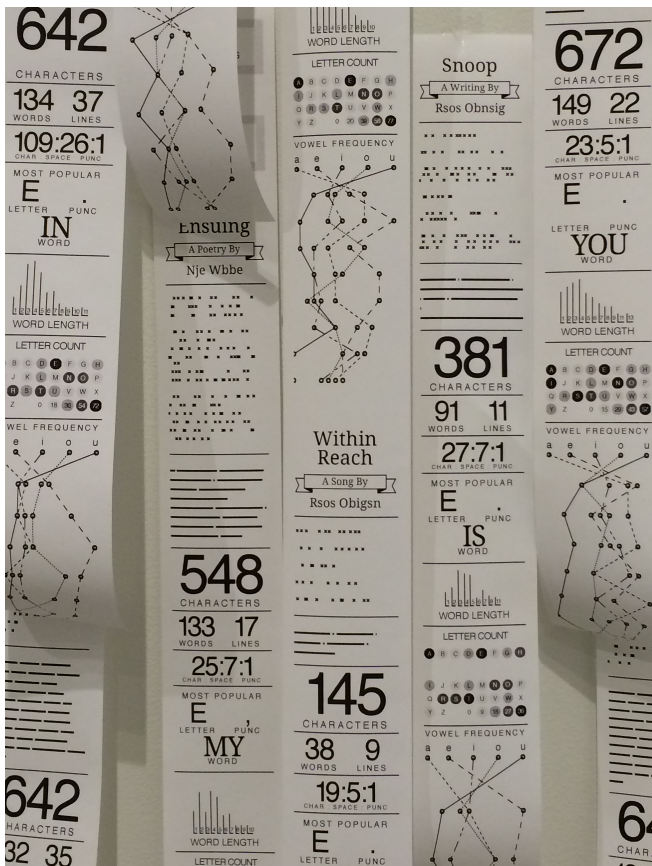 642
CHARACTERS
134 37
WORDS LINES
109:26:1
CHAR SPACE PUNC
MOST POPULAR
E .
LETTER PUNC
IN
WORD
WORD LENGTH
LETTER COUNT
B C D E F G H
J K L M N O P
R S T U V W X
Z 0 18 36 54 72
VOWEL FREQUENCY
e i o u
642
32 35
Ensuing
A Poetry By
Nje Wbbe
548
CHARACTERS
133 17
WORDS LINES
25:7:1
CHAR SPACE PUNC
MOST POPULAR
E ,
LETTER PUNC
MY
WORD
WORD LENGTH
LETTER COUNT
WORD LENGTH
LETTER COUNT
A B C D E F G H
I J K L M N O P
Q R S T U V W X
Y Z
VOWEL FREQUENCY
a e i o u
Within
Reach
A Song By
Rsos Obigsn
145
CHARACTERS
38 9
WORDS LINES
19:5:1
CHAR SPACE PUNC
MOST POPULAR
E .
LETTER PUNC
Snoop
A Writing By
Rsos Obnsig
381
CHARACTERS
91 11
WORDS LINES
27:7:1
CHAR SPACE PUNC
MOST POPULAR
E .
LETTER PUNC
IS
WORD
WORD LENGTH
LETTER COUNT
A B C D E F G H
I J K L M N O P
Q R S T U V W X
Y Z 0 9 18 27 36
VOWEL FREQUENCY
a e i o u
672
CHARACTERS
149 22
WORDS LINES
23:5:1
CHAR SPACE PUNC
MOST POPULAR
E .
LETTER PUNC
YOU
WORD
WORD LENGTH
LETTER COUNT
A B C D E F G H
I J K L M N O P
Q R S T U V W X
Y Z
VOWEL FREQUENCY
a e i o u